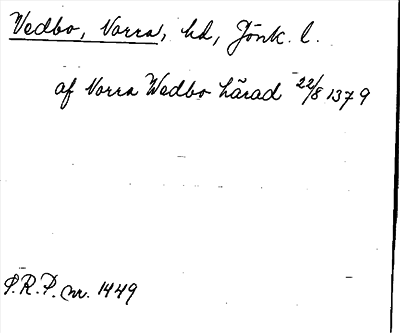 Vedbo, Norra, hd, Jönk. l.
af Norra Wedbo härad 22/8 1379
S.R.P. nr. 1449